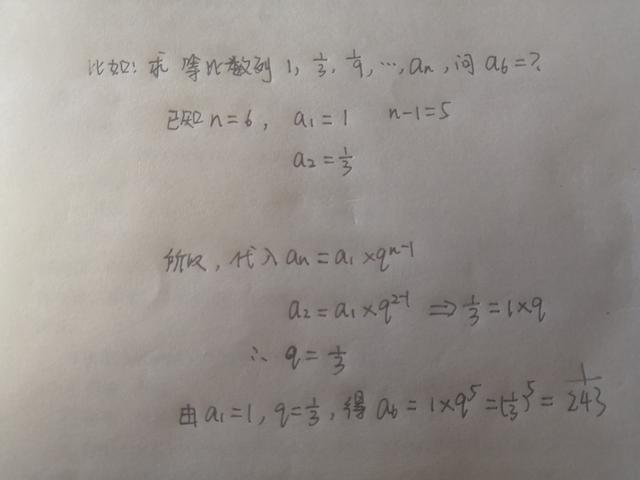 比如: 求 等比数列 1, 1/3, 1/9, …, aₙ, 问 a₆=?
已知 n=6, a₁=1 n-1=5
a₂=1/3
所以, 代入 aₙ=a₁×qⁿ⁻¹
a₂=a₁×q²⁻¹ ⇒ 1/3=1×q
∴ q=1/3
由 a₁=1, q=1/3, 得 a₆=1×q⁵=(1/3)⁵=1/243